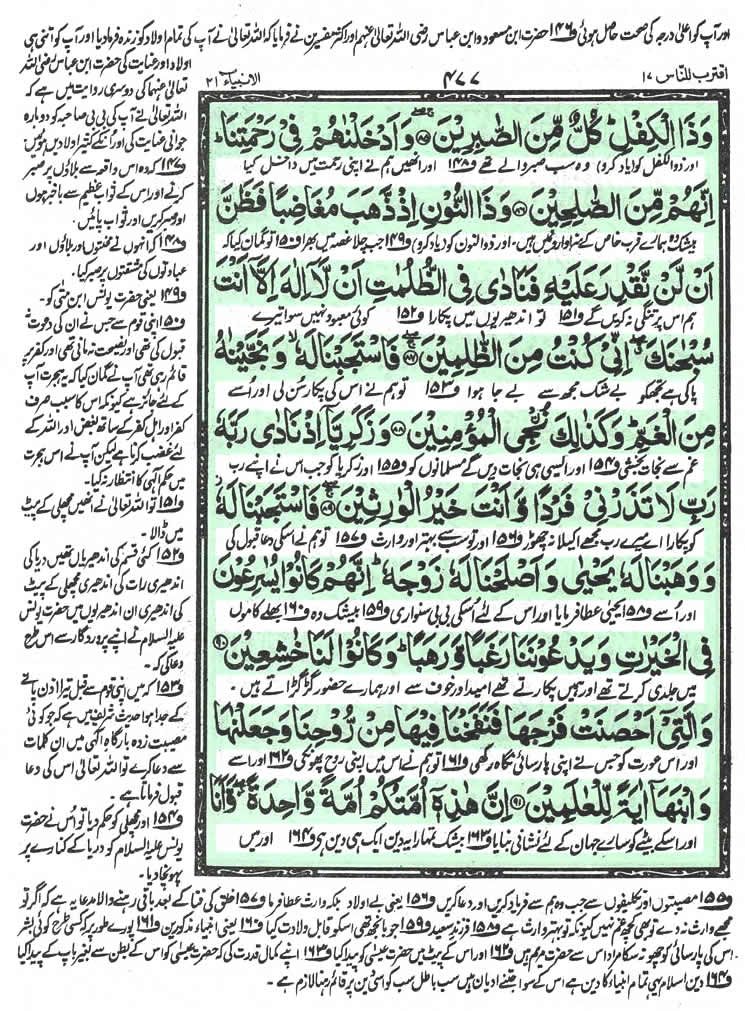 اور آپ کو اعلیٰ درجہ کی صحت حاصل ہوئی و۱۴۶ حضرت ابن مسعود و ابن عباس رضی اللہ تعالیٰ عنہم اور اکثر مفسرین نے فرمایا کہ اللہ تعالیٰ نے آپ کی تمام اولاد کو زندہ فرما دیا اور آپ کو اتنی ہی
اقترب للناس ۱۷
۴۷۷
الانبیاء ۲۱
وَذَا الْكِفْلِ ؕ كُلٌّ مِّنَ الصّٰبِرِیْنَ ﴿۸۵﴾ وَاَدْخَلْنٰهُمْ فِیْ رَحْمَتِنَا ؕ
اور ذوالکفل کو (یاد کرو) وہ سب صبر والے تھے و۱۴۸ اور انھیں ہم نے اپنی رحمت میں داخل کیا
اِنَّهُمْ مِّنَ الصّٰلِحِیْنَ ﴿۸۶﴾ وَذَا النُّوْنِ اِذْ ذَّهَبَ مُغَاضِبًا فَظَنَّ
بیشک وہ ہمارے قرب خاص کے سزاواروں میں ہیں۔ اور ذوالنون کو (یاد کرو) و۱۴۹ جب چلا غصہ میں بھرا و۱۵۰ تو گمان کیا کہ
اَنْ لَّنْ نَّقْدِرَ عَلَیْهِ فَنَادٰی فِی الظُّلُمٰتِ اَنْ لَّاۤ اِلٰهَ اِلَّاۤ اَنْتَ
ہم اس پر تنگی نہ کریں گے و۱۵۱ تو اندھیریوں میں پکارا و۱۵۲ کوئی معبود نہیں سوا تیرے
سُبْحٰنَكَ ۖ اِنِّیْ كُنْتُ مِنَ الظّٰلِمِیْنَ ﴿۸۷﴾ فَاسْتَجَبْنَا لَهٗ ۙ وَنَجَّیْنٰهُ
پاکی ہے تجھکو بے شک مجھ سے بے جا ہوا و۱۵۳ تو ہم نے اس کی پکار سن لی اور اُسے
مِنَ الْغَمِّ ؕ وَكَذٰلِكَ نُنْجِی الْمُؤْمِنِیْنَ ﴿۸۸﴾ وَزَكَرِیَّاۤ اِذْ نَادٰی رَبَّهٗ
غم سے نجات بخشی و۱۵۴ اور ایسی ہی نجات دیں گے مسلمانوں کو و۱۵۵ اور زکریا کو جب اس نے اپنے رب
رَبِّ لَا تَذَرْنِیْ فَرْدًا وَّاَنْتَ خَیْرُ الْوٰرِثِیْنَ ﴿۸۹﴾ فَاسْتَجَبْنَا لَهٗ
کو پکارا اے میرے رب مجھے اکیلا نہ چھوڑ و۱۵۶ اور تو سب سے بہتر اور وارث و۱۵۷ تو ہم نے اسکی دعا قبول کی
وَوَهَبْنَا لَهٗ یَحْیٰی وَاَصْلَحْنَا لَهٗ زَوْجَهٗ ؕ اِنَّهُمْ كَانُوْا یُسٰرِعُوْنَ
اور اُسے و۱۵۸ یحییٰ عطا فرمایا اور اس کے لئے اُسکی بی بی سنواری و۱۵۹ بیشک وہ و۱۶۰ بھلے کاموں
فِی الْخَیْرٰتِ وَیَدْعُوْنَنَا رَغَبًا وَّرَهَبًا ؕ وَكَانُوْا لَنَا خٰشِعِیْنَ ﴿۹۰﴾
میں جلدی کرتے تھے اور ہمیں پکارتے تھے امید اور خوف سے اور ہمارے حضور گڑگڑاتے ہیں۔
وَالَّتِیْۤ اَحْصَنَتْ فَرْجَهَا فَنَفَخْنَا فِیْهَا مِنْ رُّوْحِنَا وَجَعَلْنٰهَا
اور اس عورت کو جس نے اپنی پارسائی نگاہ رکھی و۱۶۱ تو ہم نے اس میں اپنی روح پھونکی و۱۶۲ اور اسے
وَابْنَهَاۤ اٰیَةً لِّلْعٰلَمِیْنَ ﴿۹۱﴾ اِنَّ هٰذِهٖۤ اُمَّتُكُمْ اُمَّةً وَّاحِدَةً ۖ وَّاَنَا
اور اسکے بیٹے کو سارے جہان کے لئے نشانی بنایا و۱۶۳ بیشک تمہارا یہ دین ایک ہی دین ہی و۱۶۴ اور میں
اولاد اور عنایت کی حضرت ابن عباس رضی اللہ
تعالیٰ عنہما کی دوسری روایت میں ہے کہ
اللہ تعالیٰ نے آپ کی بی بی صاحبہ کو دوبارہ
جوانی عنایت کی اور اُنکے کثیر اولادیں ہوئیں
و۱۴۷ کہ وہ اس واقعہ سے بلاؤں پر صبر
کرنے اور اس کے ثواب عظیم سے باخبر ہوں
اور صبر کریں اور ثواب پائیں۔
و۱۴۸ کہ انہوں نے محنتوں اور بلاؤں اور
عبادتوں کی مشقتوں پر صبر کیا۔
و۱۴۹ یعنی حضرت یونس ابن متی کو۔
و۱۵۰ اپنی قوم سے جس نے ان کی دعوت نہ
قبول کی تھی اور نصیحت نہ مانی تھی اور کفر پر
قائم رہی تھی آپ نے گمان کیا کہ یہ ہجرت آپ
کے لئے جائز ہے کیونکہ اس کا سبب صرف
کفر اور اہل کفر کے ساتھ بغض اور اللہ کے
لئے غضب کرنا ہے لیکن آپ نے اس ہجرت
میں حکم الٰہی کا انتظار نہ کیا۔
و۱۵۱ تو اللہ تعالیٰ نے انھیں مچھلی کے پیٹ
میں ڈالا۔
و۱۵۲ کئی قسم کی اندھیریاں تھیں دریا کی
اندھیری رات کی اندھیری مچھلی کے پیٹ
کی اندھیری ان اندھیریوں میں حضرت یونس
علیہ السلام نے اپنے پروردگار سے اس طرح
دعا کی کہ۔
و۱۵۳ کہ میں اپنی قوم سے قبل تیرا اذن پانے
کے جدا ہوا حدیث شریف میں ہے کہ جو کوئی
مصیبت زدہ بارگاہِ الٰہی میں ان کلمات
سے دعا کرے تو اللہ تعالیٰ اس کی دعا
قبول فرماتا ہے۔
و۱۵۴ اور مچھلی کو حکم دیا تو اُس نے حضرت
یونس علیہ السلام کو دریا کے کنارے پر
پہونچا دیا۔
و۱۵۵ مصیبتوں اور تکلیفوں سے جب وہ ہم سے فریاد کریں اور دعا کریں و۱۵۶ یعنی بے اولاد بلکہ وارث عطا فرما و۱۵۷ خلق کی فنا کے بعد باقی رہنے والا مدعا یہ ہے کہ اگر تو
مجھے وارث نہ دے تو بھی کچھ غم نہیں کیونکہ تو بہتر وارث ہے و۱۵۸ فرزند سعید و۱۵۹ جو بانجھ تھی اسکو قابل ولادت کیا و۱۶۰ یعنی انبیاء مذکورین و۱۶۱ پورے طور پر کہ کسی طرح کوئی بشر
اس کی پارسائی کو چھو نہ سکا مراد اس سے حضرت مریم ہیں و۱۶۲ اور اس کے پیٹ میں حضرت عیسیٰ کو پیدا کیا و۱۶۳ اپنے کمال قدرت کی کہ حضرت عیسیٰ کو اس کے بطن سے بغیر باپ کے پیدا کیا
و۱۶۴ دین اسلام یہی تمام انبیاء کا دین ہے اس کے سوا جتنے ادیان ہیں سب باطل سب کو اسی دین پر قائم رہنا لازم ہے۔